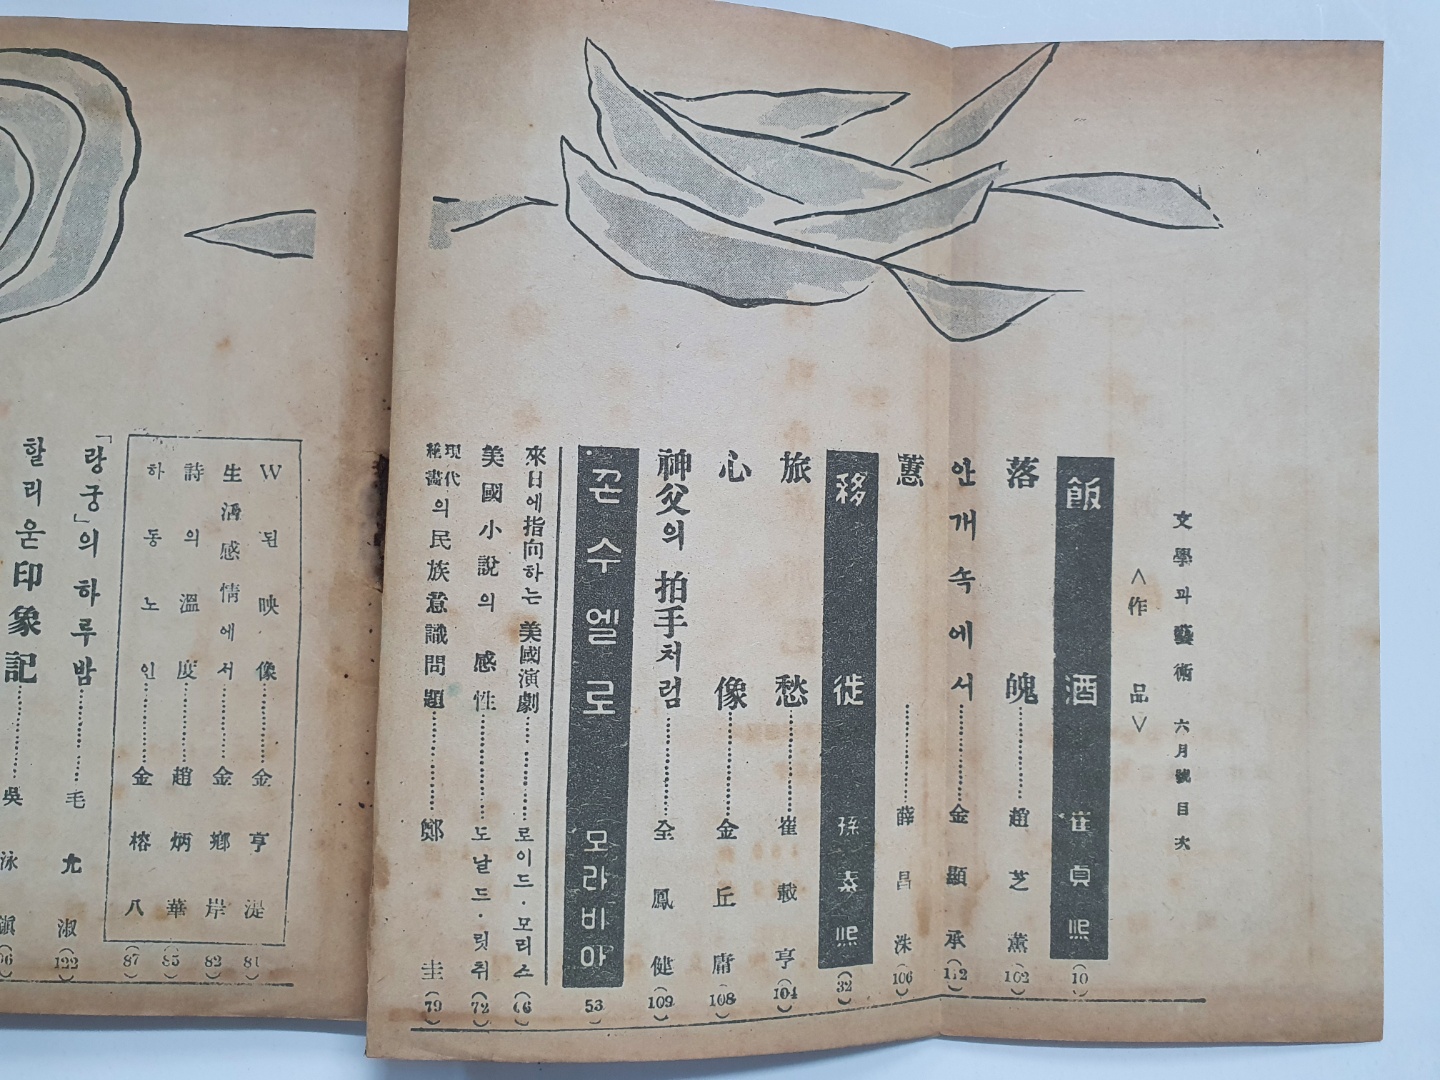 文學과 藝術 六月號目次
<作品>
飯酒 崔貞熙 (10)
落魄 趙芝薰 (102)
안개속에서 金顯承 (112)
蕙 薛昌洙 (106)
移徙 孫素熙 (32)
旅愁 崔載亨 (104)
心像 金丘庸 (108)
神父의 拍手처럼 全鳳健 (109)
꼰수엘로 모라비아 53
來日에指向하는 美國演劇 로이드·모리스 (66)
美國小說의 感性 도날드·릿취 (72)
現代繪畵의 民族意識問題 鄭圭 (79)
W된映像 金亨湜 (81)
生活感情에서 金鄕岸 (82)
詩의溫度 趙炳華 (85)
하동노인 金榕八 (87)
「랑궁」의 하루밤 毛允淑 (122)
할리욷印象記 吳泳鎭